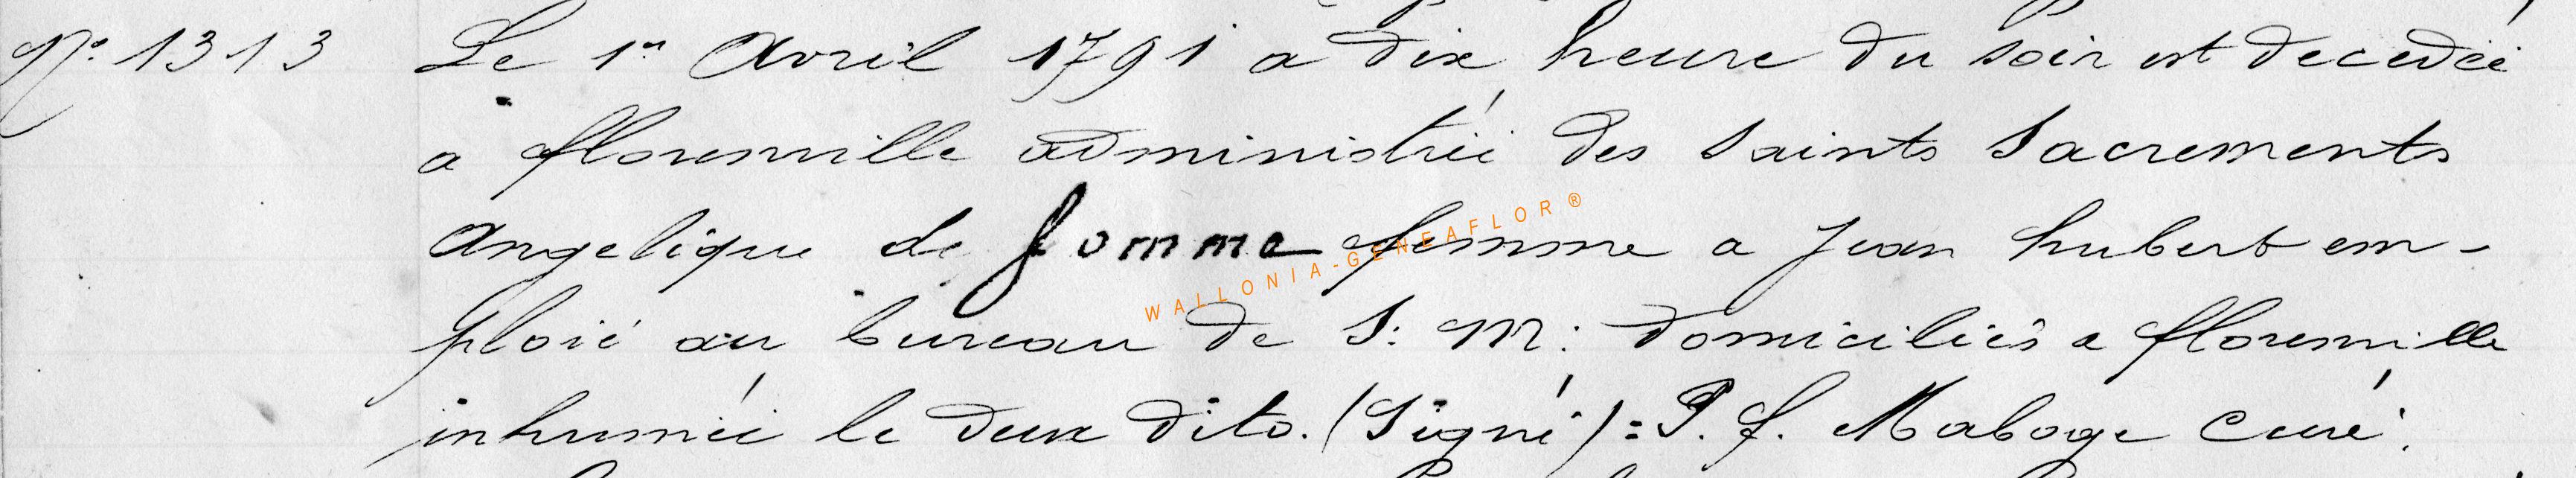 N° 1313 Le 1er Avril 1791 a dix heure du soir est decedée
a florenville administrée des Saints Sacrements
Angelique de fomme femme a Jean hubert em-
ploié au bureau de S: M: domiciliés a florenville
inhumée le deux dito. (Signé) = P. f. Maboge Curé.
WALLONIA-GENEAFLOR ®